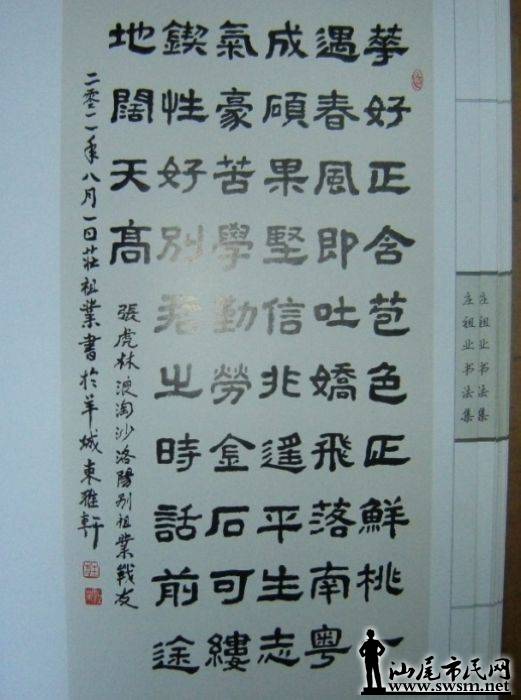 華好正含苞色正鮮桃一
遇春風即吐嬌飛落南粤
成碩果堅信兆遥平生志
氣豪苦學勤勞金石可縷
鍥性好別君之時話前途
地闊天高
張虎林浪淘沙洛陽别祖業戰友
二零一一年八月一日莊祖業書於羊城東雅軒
庄祖业书法集
庄祖业书法集
汕尾市民网
www.swsm.net